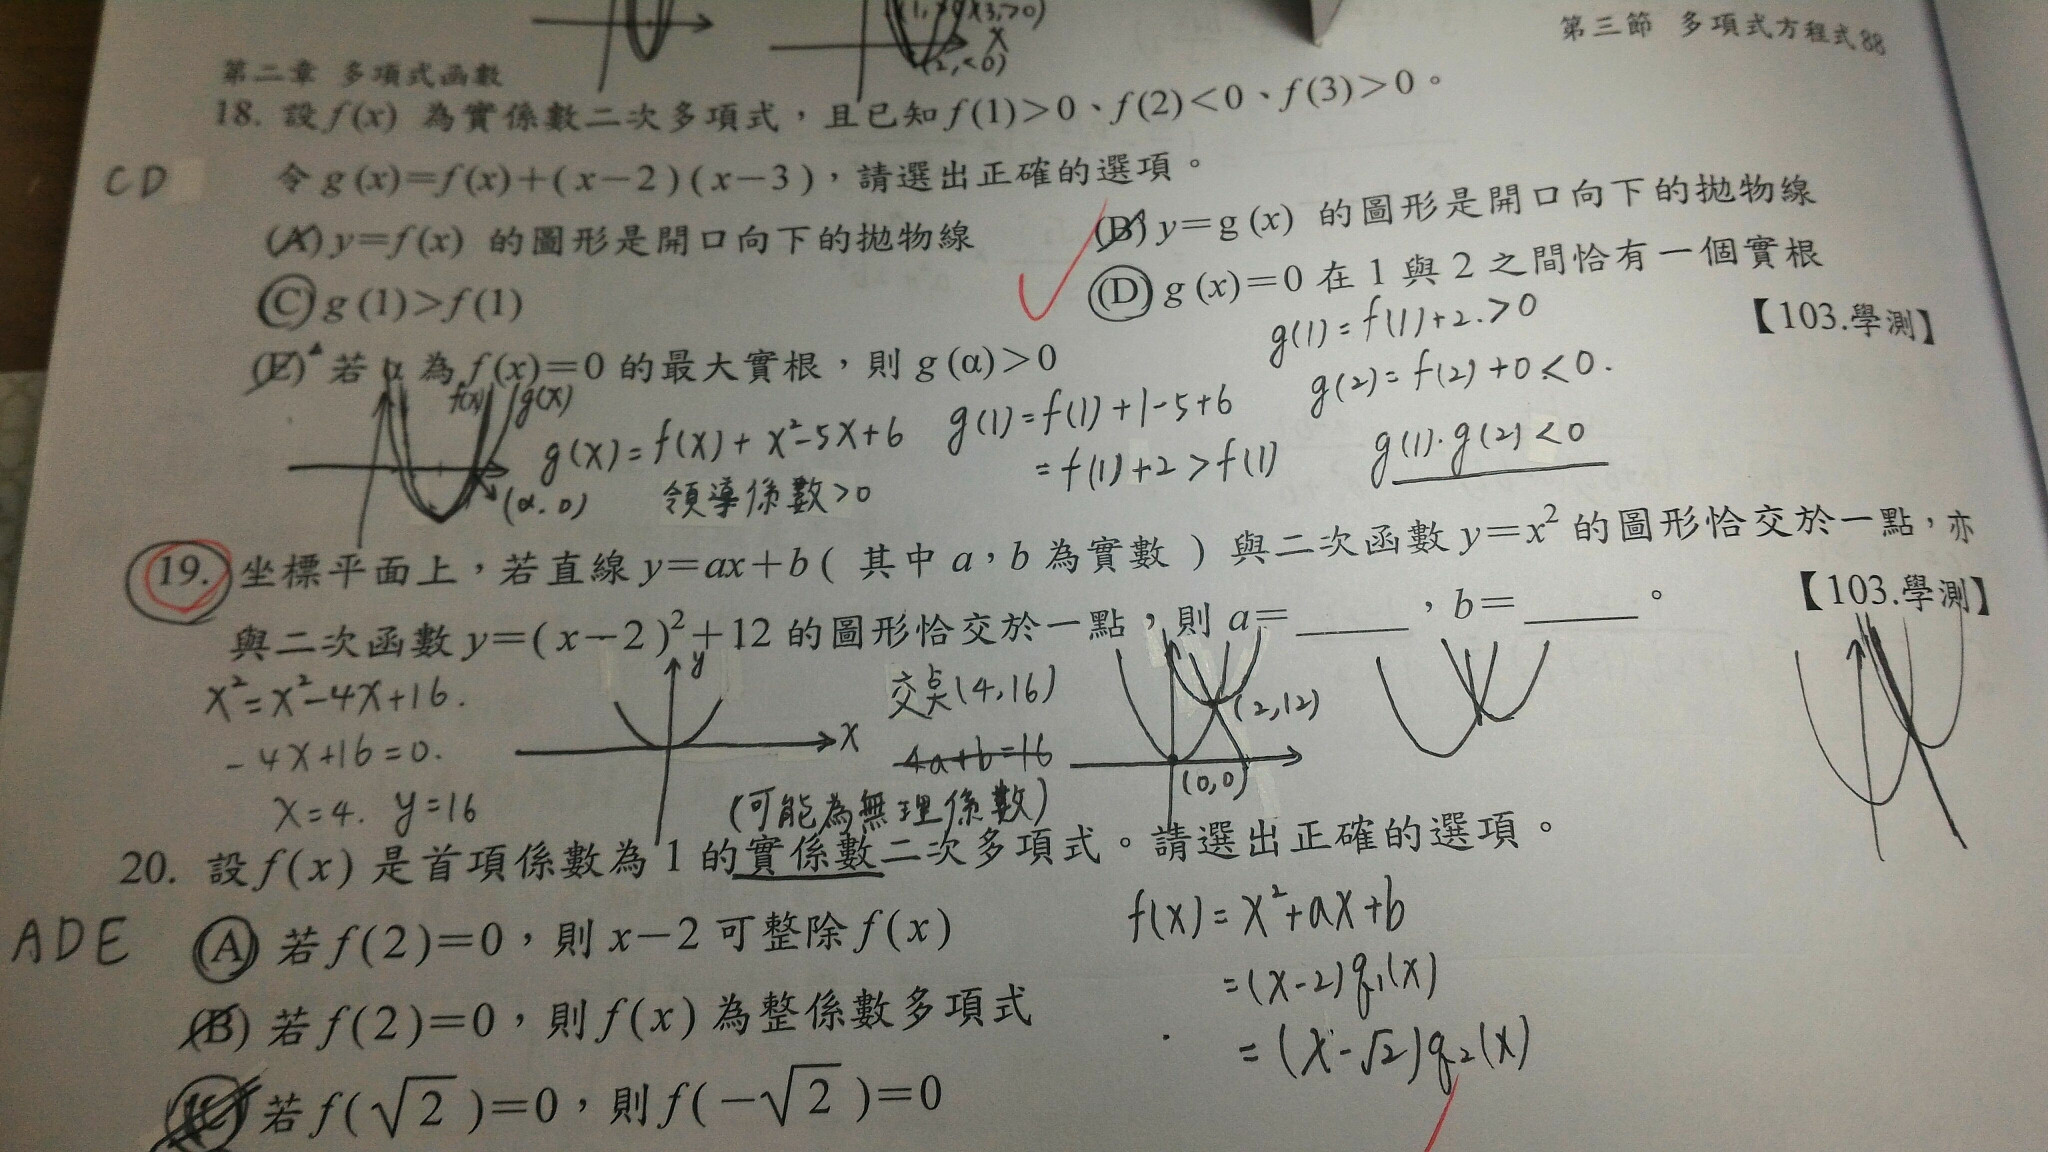 (1,>0)(3,>0)
X
(2,<0)
第三節 多項式方程式88
第二章 多項式函數
18. 設f(x) 為實係數二次多項式，且已知f(1)>0、f(2)<0、f(3)>0。
CD
令g(x)=f(x)+(x−2)(x−3)，請選出正確的選項。
(A) y=f(x) 的圖形是開口向下的拋物線
(B) y=g(x) 的圖形是開口向下的拋物線
(C) g(1)>f(1)
(D) g(x)=0 在 1 與 2 之間恰有一個實根
【103.學測】
(E) 若 α 為 f(x)=0 的最大實根，則 g(α)>0
g(1)=f(1)+2>0
g(2)=f(2)+0<0.
g(1)·g(2)<0
f(x) g(x)
(α,0)
g(x)=f(x)+x²−5x+6
領導係數>0
g(1)=f(1)+1−5+6
=f(1)+2>f(1)
19. 坐標平面上，若直線y=ax+b( 其中 a，b 為實數 ) 與二次函數 y=x² 的圖形恰交於一點，亦
與二次函數y=(x−2)²+12 的圖形恰交於一點，則 a=______，b=______。
【103.學測】
x²=x²−4x+16.
−4x+16=0.
x=4. y=16
y
x
交點(4,16)
4a+b=16
(2,12)
(0,0)
(可能為無理係數)
20. 設f(x) 是首項係數為 1 的實係數二次多項式。請選出正確的選項。
ADE
(A) 若f(2)=0，則 x−2 可整除f(x)
(B) 若f(2)=0，則f(x) 為整係數多項式
(C) 若f(√2)=0，則f(−√2)=0
f(x)=x²+ax+b
=(x−2)q₁(x)
=(x−√2)q₂(x)